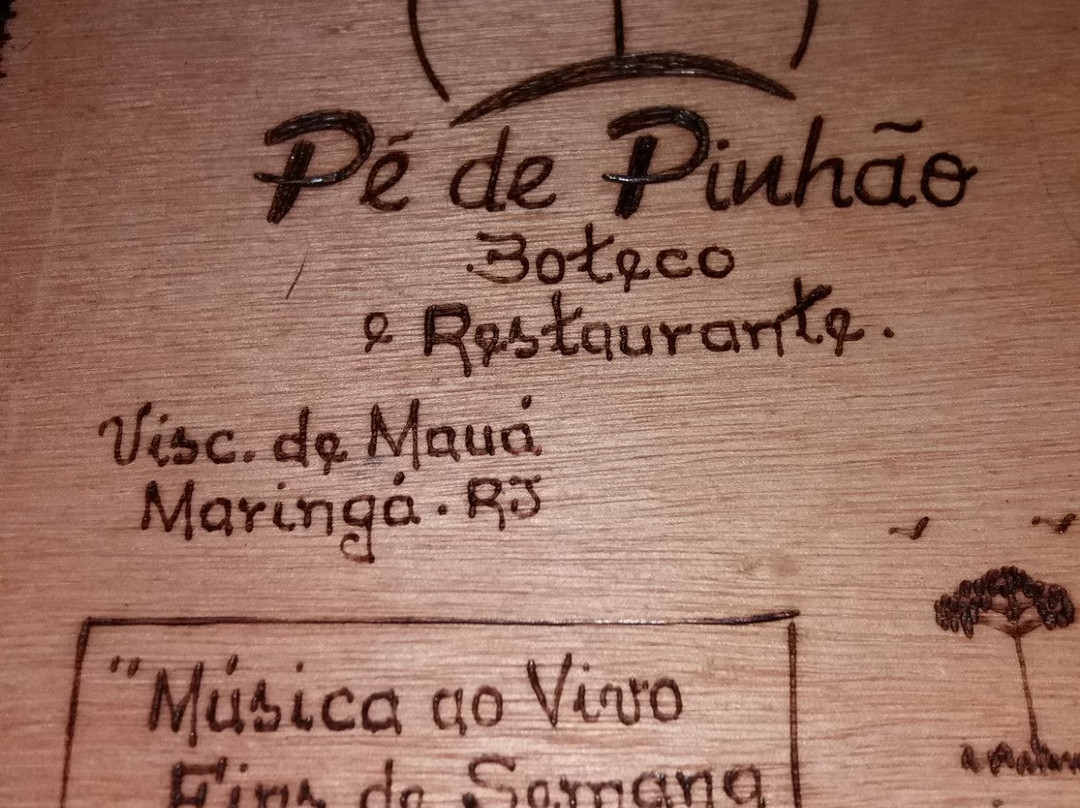 Pé de Pinhão
Boteco
e Restaurante.
Visc. de Mauá
Maringá. RJ
"Música ao Vivo
Fins de Semana